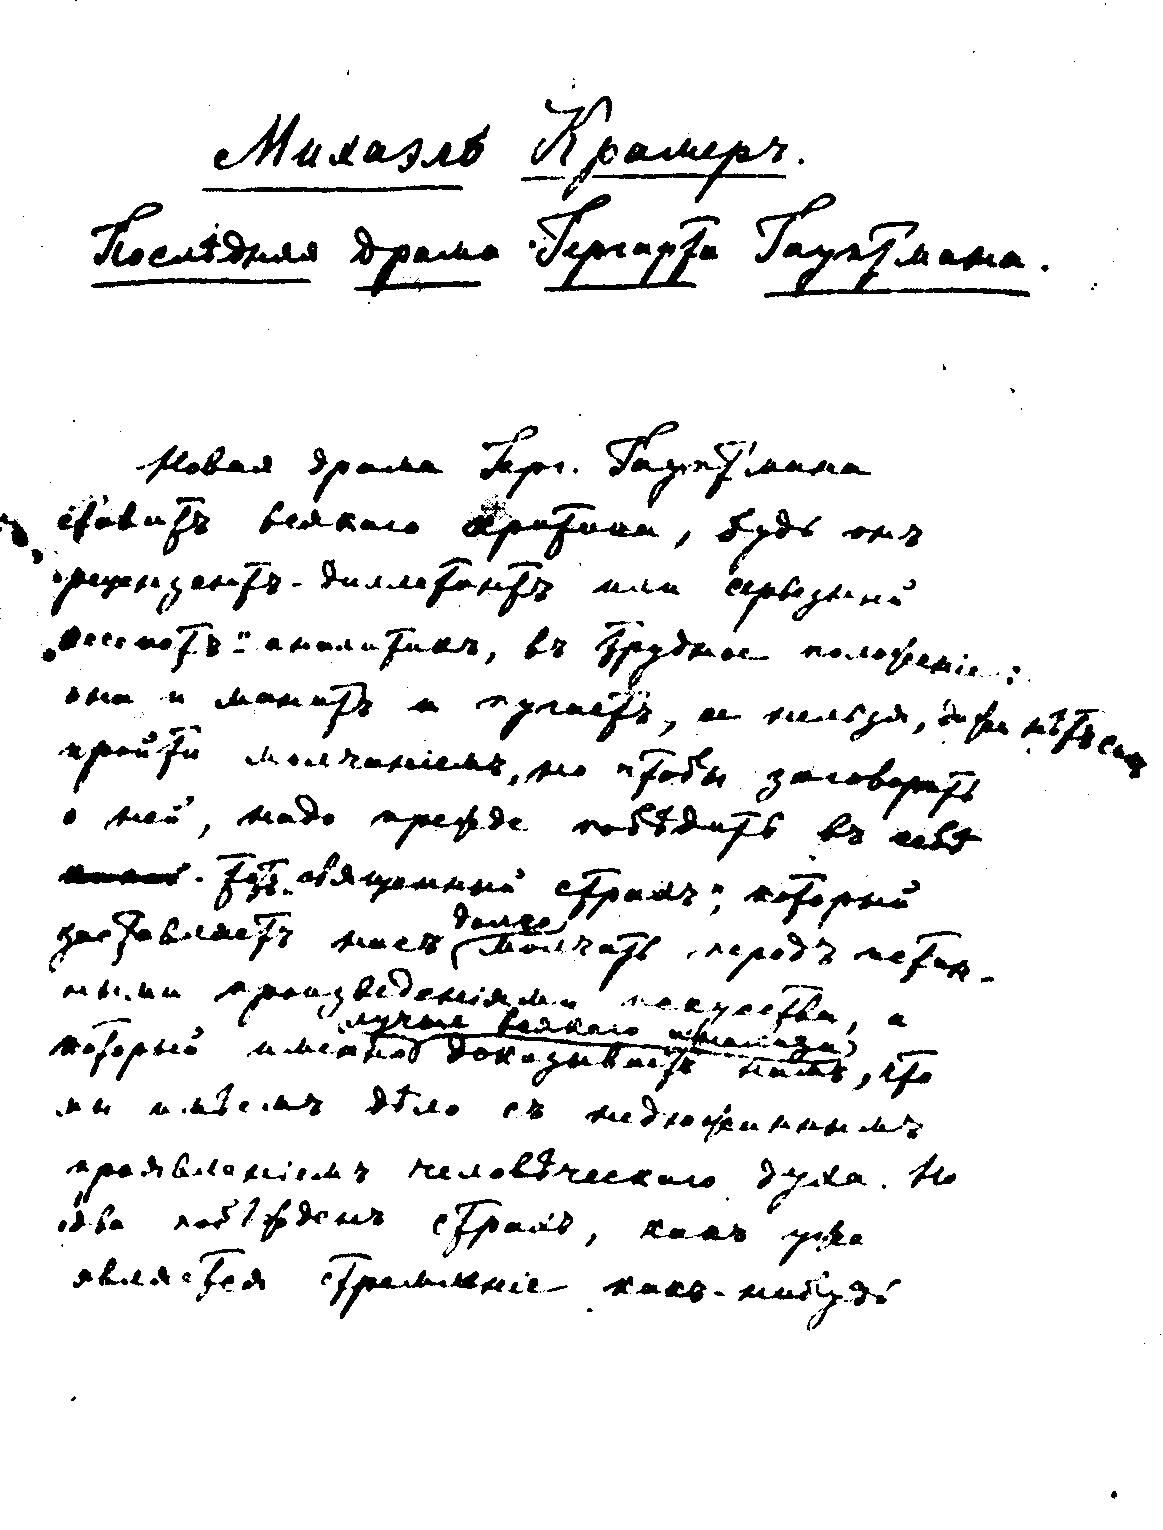 Михаэль Крамеръ.
Послѣдняя драма Гергарта Гауптмана.
Новая драма Герг. Гауптмана
ставитъ всякаго критика, будь онъ
рецензентъ-диллетантъ или серьезный
аналитикъ, въ трудное положеніе:
она и манитъ и пугаетъ, ее нельзя, даже нѣтъ силъ
пройти молчаніемъ, но чтобы заговорить
о ней, надо прежде побѣдить въ себѣ
тотъ „священный страхъ“, который
заставляетъ насъ долго молчать передъ истин-
ными произведеніями искусства, и
лучше всякаго анализа
который именно доказываетъ намъ, что
мы имѣемъ дѣло съ недюжиннымъ
проявленіемъ человѣческаго духа. Но
едва побѣжденъ страхъ, какъ уже
является стремленіе какъ-нибудь